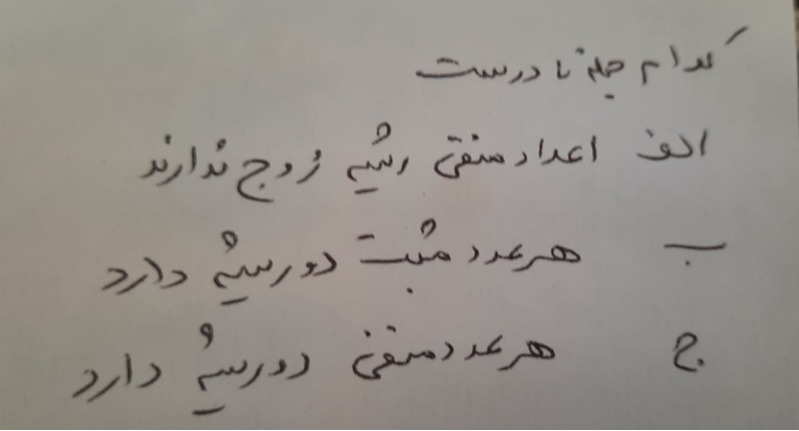 کدام جمله نادرست
الف اعداد منفی ریشه زوج ندارند
ب هر عدد مثبت دو ریشه دارد
ج هر عدد منفی دو ریشه دارد